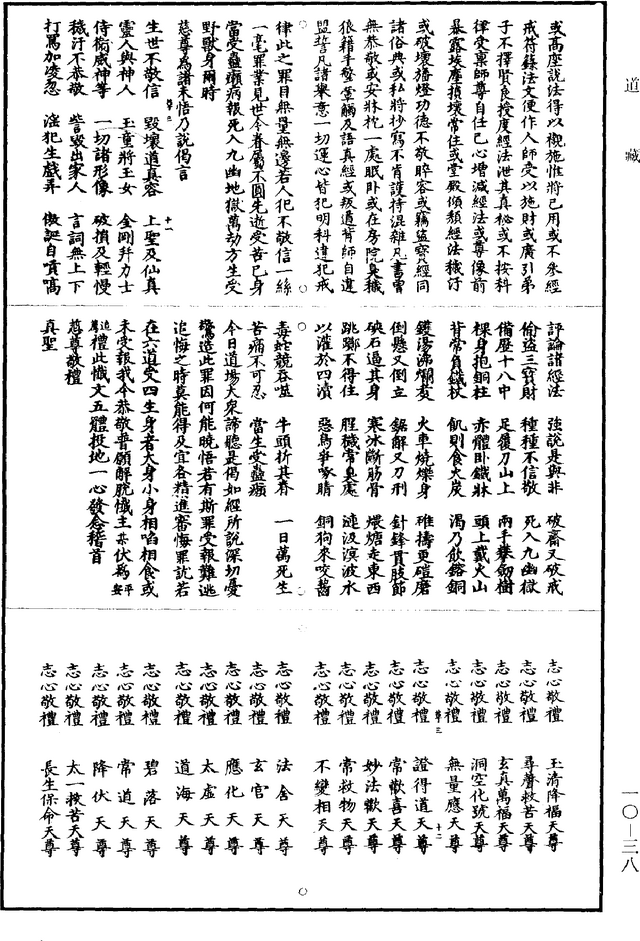 道藏
或高座說法得以襯施性將已用或不永經
戒符籙法文便作人師受以施財或廣引弟
子不擇賢良授度經法泄其真祕或不按科
律受稟師尊自任已心增減經法或尊像前
暴露埃塵損壞常住或堂殿傾頹經法穢汙
或破壞旛燈功德不敬睟容或竊盜寶經同
諸俗典或私將抄寫不肯護持混雜凡書曾
無恭敬或安牀枕一處眠卧或在房院臭穢
狼籍手擎葷觸及語真經或叛道背師自違
盟誓凡諸舉意一切運心皆犯明科違犯戒
律此之罪目無量無邊若人犯不敬信一絲
一毫罪業見世今眷屬不圓先逝受苦已身
當受蠱癩病報死入九幽地獄萬劫方生受
野獸身爾時
慈尊為諸未悟乃說偈言
生世不敬信　毀壞道真容　上聖及仙真
靈人與神人　玉童將玉女　金剛并力士
侍衛威神等　一切諸形像　破損及輕慢
穢汙不恭敬　訾毀出家人　言詞無上下
打罵加凌忽　淫犯生戲弄　傲誕自貢高
評論諸經法　強說是與非　破齋又破戒
偷盜三寶財　種種不信敬　死入九幽獄
備歷十八中　足履刀山上　兩手攀劒樹
裸身抱銅柱　赤體卧鐵牀　頭上戴火山
背常負鐵杖　飢則食火炭　渴乃飲鎔銅
鑊湯沸爛煑　火車燒爍身　碓擣更磑磨
倒懸又倒立　鋸解又刀刑　針鋒貫肢節
砆石過其身　寒冰斷筋骨　煨煻走東西
跳躑不得住　腥穢常臭處　漣汲溟波水
以灌於四瀆　惡鳥爭啄睛　銅狗來咬齧
毒蛇競吞噬　牛頭折其脊　一日萬死生
苦痛不可忍　當生受蠱癩
今日道場大衆諦聽是偈如經所說深切憂
驚造此罪因何能曉悟若有斯罪受報難逃
追悔之時莫能得及宜各精進審悔罪訧若
在六道受四生身者大身小身相啗相食或
未受報我今恭敬普願解脫懺主某伏為平安
追薦禮此懺文五體投地一心發念稽首
慈尊敬禮
真聖
志心敬禮　玉清降福天尊
志心敬禮　尋聲救苦天尊
志心敬禮　玄真萬福天尊
志心敬禮　洞空化號天尊
志心敬禮　無量應天尊
志心敬禮　證得道天尊
志心敬禮　常歡喜天尊
志心敬禮　妙法歡天尊
志心敬禮　常救物天尊
志心敬禮　不變相天尊
志心敬禮　法舍天尊
志心敬禮　玄官天尊
志心敬禮　應化天尊
志心敬禮　太虛天尊
志心敬禮　道海天尊
志心敬禮　碧落天尊
志心敬禮　常道天尊
志心敬禮　降伏天尊
志心敬禮　太一救苦天尊
志心敬禮　長生保命天尊
一〇—三八